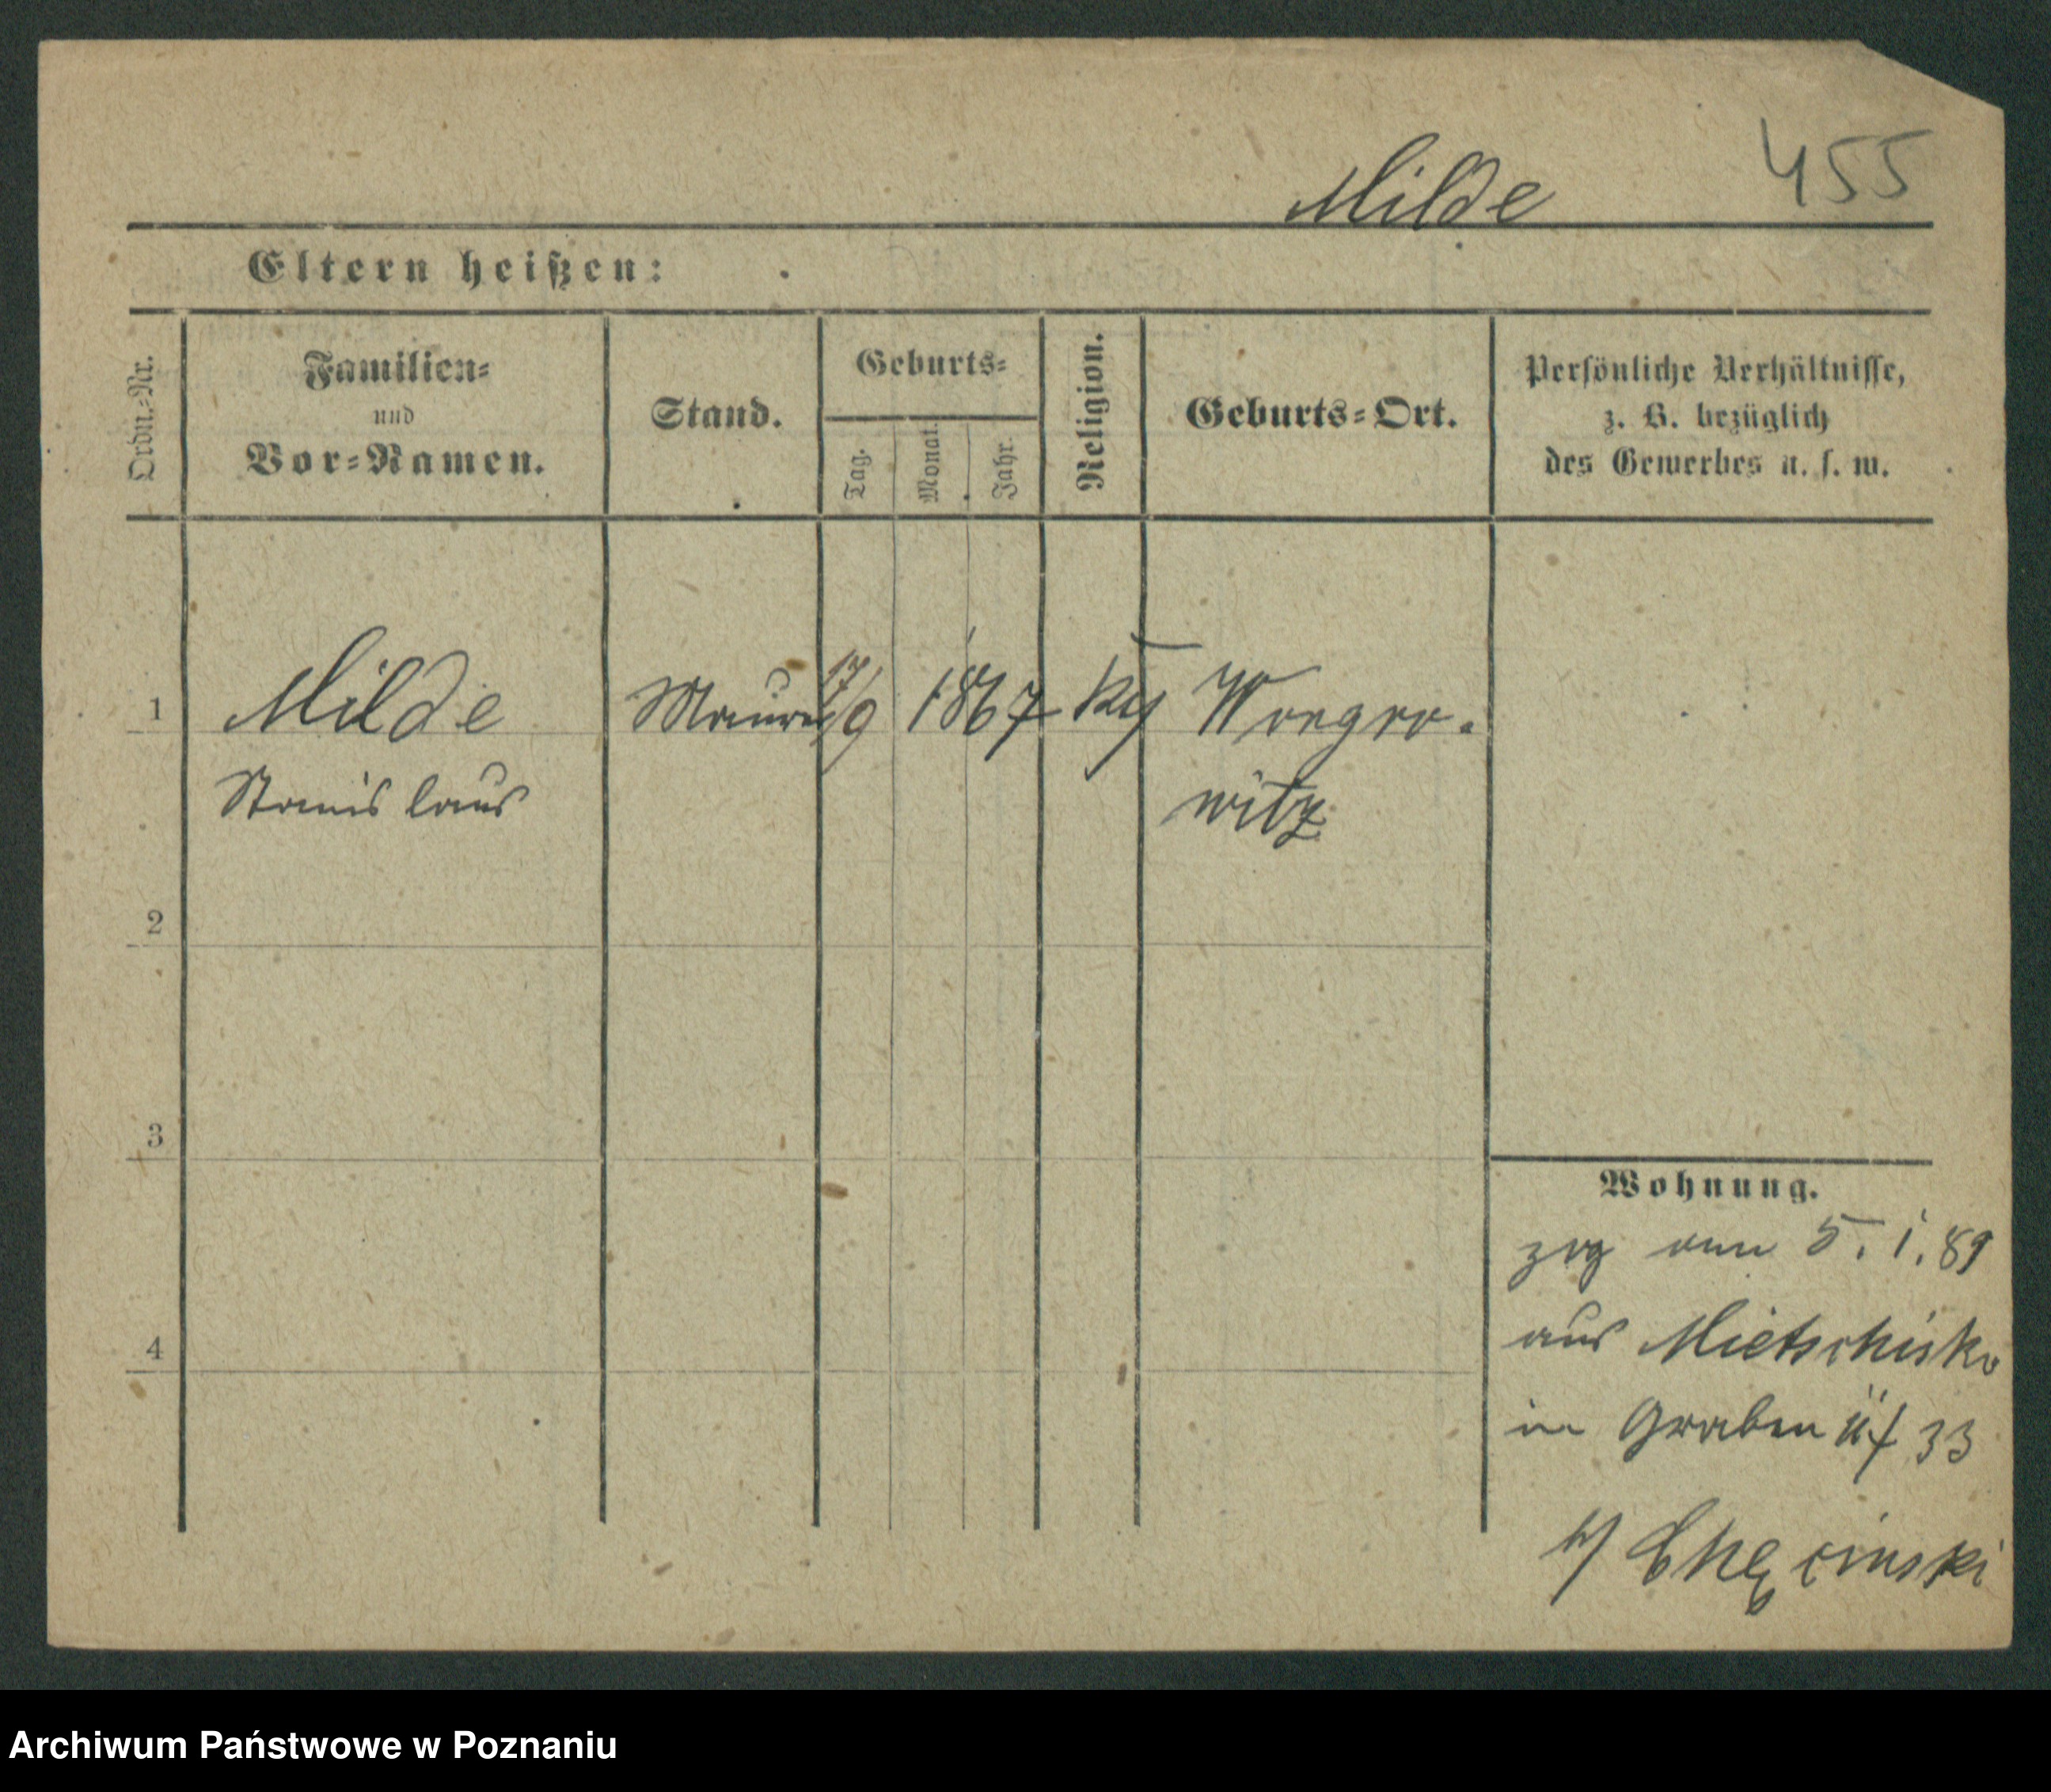 Milde 455
Eltern heißen:
Ordn.-Nr.
Familien-
und
Vor-Namen.
Stand.
Geburts-
Tag.
Monat.
Jahr.
Religion.
Geburts-Ort.
Persönliche Verhältnisse,
z. B. bezüglich
des Gewerbes u. s. w.
1 Milde Maurer 17/9 1867 Wongro-
Stanislaus witz
2
3
4
Wohnung.
zog am 5. 1. 89
aus Mietschisko
in Graben 33
b/ Chęcinski
Archiwum Państwowe w Poznaniu